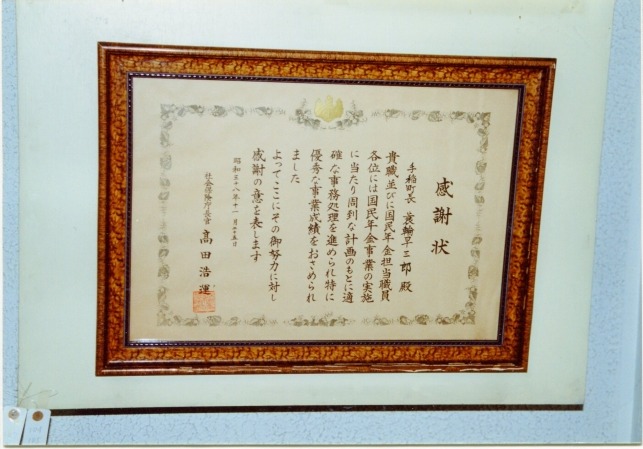 感謝状
手稲町長 蓑輪早三郎 殿
貴職並びに国民年金担当職員
各位には国民年金事業の実施
に当たり周到な計画のもとに適
確な事務処理を進められ特に
優秀な事業成績をおさめられ
ました
よってここにその御努力に対し
感謝の意を表します
昭和三十八年十一月二十五日
社会保険庁長官 高田浩運